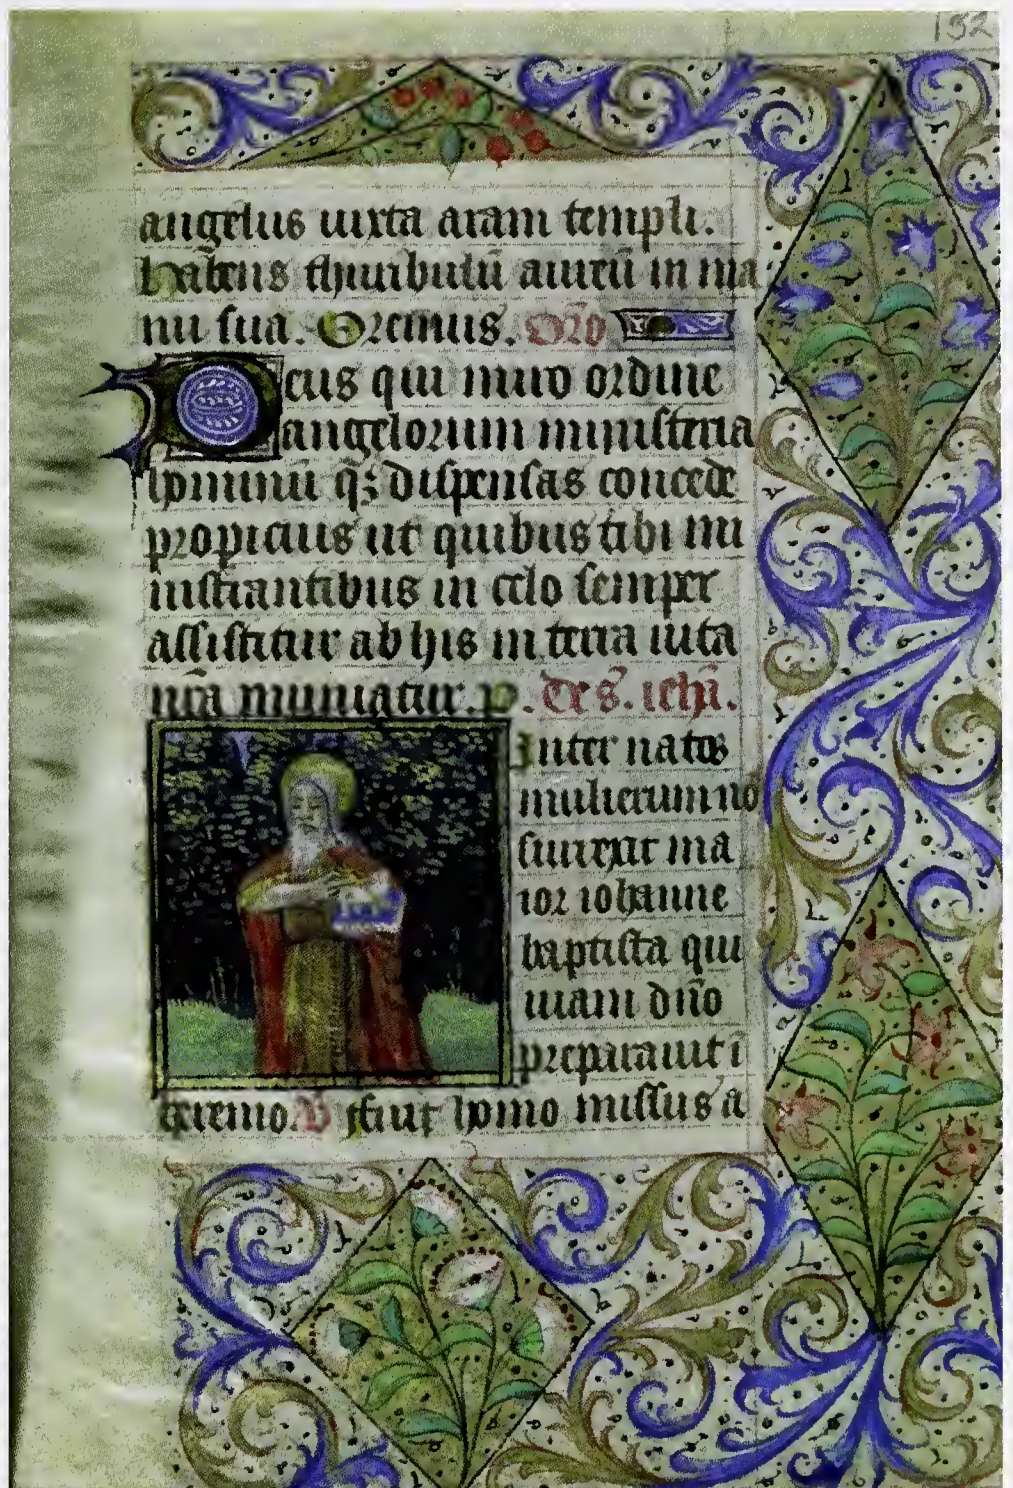 152
angelus iuxta aram templi.
habens thuribulū aureū in ma
nu sua. Oremus. Oro
Deus qui miro ordine
angelorum ministeria
hominū q̄ȝ dispensas concede
propicius ut quibus tibi mi
nistrantibus in celo semper
assistitur ab hijs in terra uita
nr̄a muniatur. p. de s. ioh̄i.
Inter natos
mulierum nō
surrexit ma
ior iohanne
baptista qui
uiam dn̄o
preparauit ī
heremo. V fuit homo missus a